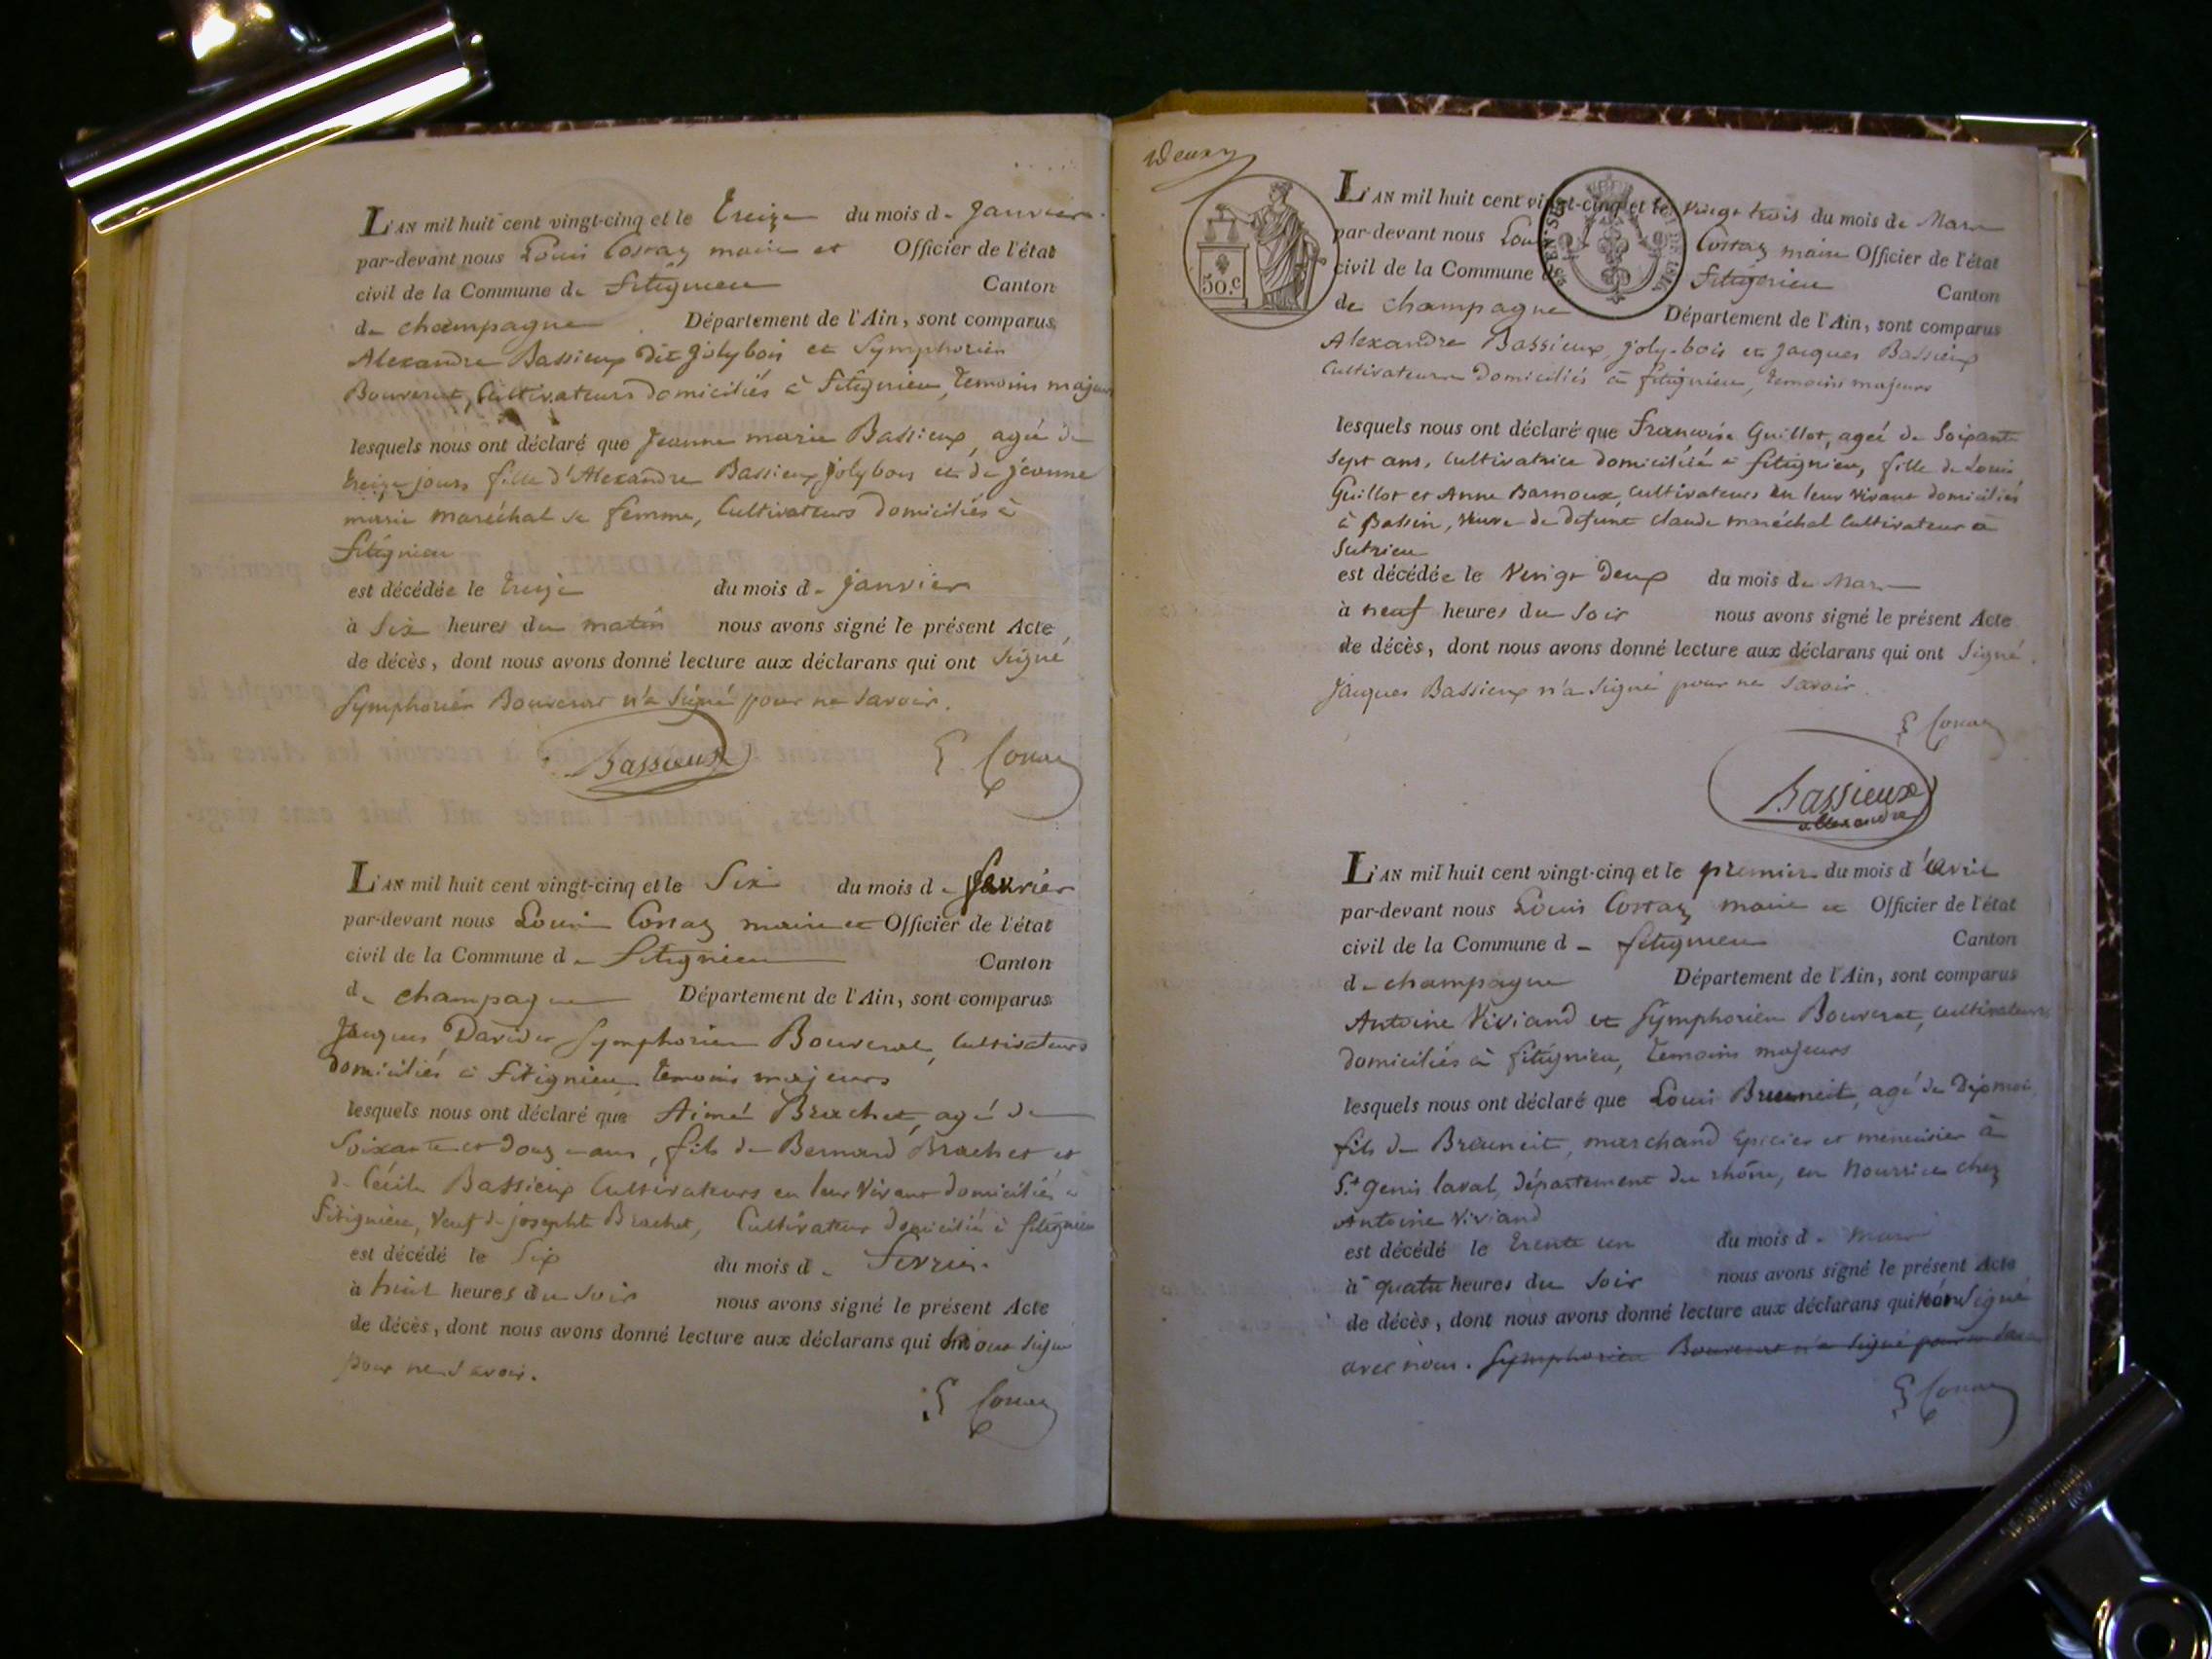 L'AN mil huit cent vingt-cinq et le treize du mois de Janvier
par-devant nous Louis Cottaz maire et Officier de l'état
civil de la Commune de fitignieu Canton
de champagne Département de l'Ain, sont comparus
Alexandre Bassieux dit jolybois et Symphorien
Bouverat, Cultivateurs domiciliés à fitignieu, temoins majeurs
lesquels nous ont déclaré que Jeanne marie Bassieux, agée de
treize jours fille d'Alexandre Bassieux jolybois et de jeanne
marie maréchal sa femme, Cultivateurs domiciliés à
fitignieu
est décédée le treize du mois de janvier
à Six heures du matin nous avons signé le présent Acte
de décès, dont nous avons donné lecture aux déclarans qui ont Signé
Symphorien Bouverat n'a Signé pour ne Savoir.
Bassieux
L'AN mil huit cent vingt-cinq et le Six du mois de fevrier
par-devant nous Louis Cottaz maire et Officier de l'état
civil de la Commune de fitignieu Canton
de champagne Département de l'Ain, sont comparus
Jacques David et Symphorien Bouverat, Cultivateurs
domiciliés à fitignieu temoins majeurs
lesquels nous ont déclaré que Aimé Brachet, agé de
Soixante et douze ans, fils de Bernard Brachet et
de Cécile Bassieux Cultivateurs en leur Vivant domiciliés à
fitignieu, Veuf de josephte Brachet, Cultivateur domicilié à fitignieu
est décédé le Six du mois de fevrier
à huit heures du Soir nous avons signé le présent Acte
de décès, dont nous avons donné lecture aux déclarans qui n'ont Signé
pour ne Savoir.
Deux
50.c
L'AN mil huit cent vingt-cinq et le vingt trois du mois de Mars
par-devant nous Louis Cottaz maire Officier de l'état
civil de la Commune de fitignieu Canton
de champagne Département de l'Ain, sont comparus
Alexandre Bassieux, joly-bois et Jacques Bassieux
Cultivateurs domiciliés à fitignieu, temoins majeurs
lesquels nous ont déclaré que francoise Guillot, ageé de Soixante
Sept ans, Cultivatrice domiciliéé à fitignieu, fille de Louis
Guillot et Anne Barnoux, Cultivateurs en leur vivant domiciliés
à Bassin, veuve de defunt claude maréchal Cultivateur à
Sutrieu
est décédée le Vingt Deux du mois de Mars
à neuf heures du Soir nous avons signé le présent Acte
de décès, dont nous avons donné lecture aux déclarans qui ont Signé.
Jacques Bassieux n'a Signé pour ne Savoir.
Bassieux
allexandre
L'AN mil huit cent vingt-cinq et le premier du mois d'avril
par-devant nous Louis Cottaz maire et Officier de l'état
civil de la Commune de fitignieu Canton
de champagne Département de l'Ain, sont comparus
Antoine Viviand et Symphorien Bouverat, Cultivateurs
domiciliés à fitignieu, temoins majeurs
lesquels nous ont déclaré que Louis Bruneit, agé de Dix mois,
fils de Bruneit, marchand Epicier et menuisier à
St. Genis laval, département du rhône, en Nourrice chez
Antoine Viviand
est décédé le trente un du mois de mars
à quatre heures du Soir nous avons signé le présent Acte
de décès, dont nous avons donné lecture aux déclarans qui n'ont Signé
avec nous. Symphorien Bouverat n'a Signé pour ne Savoir